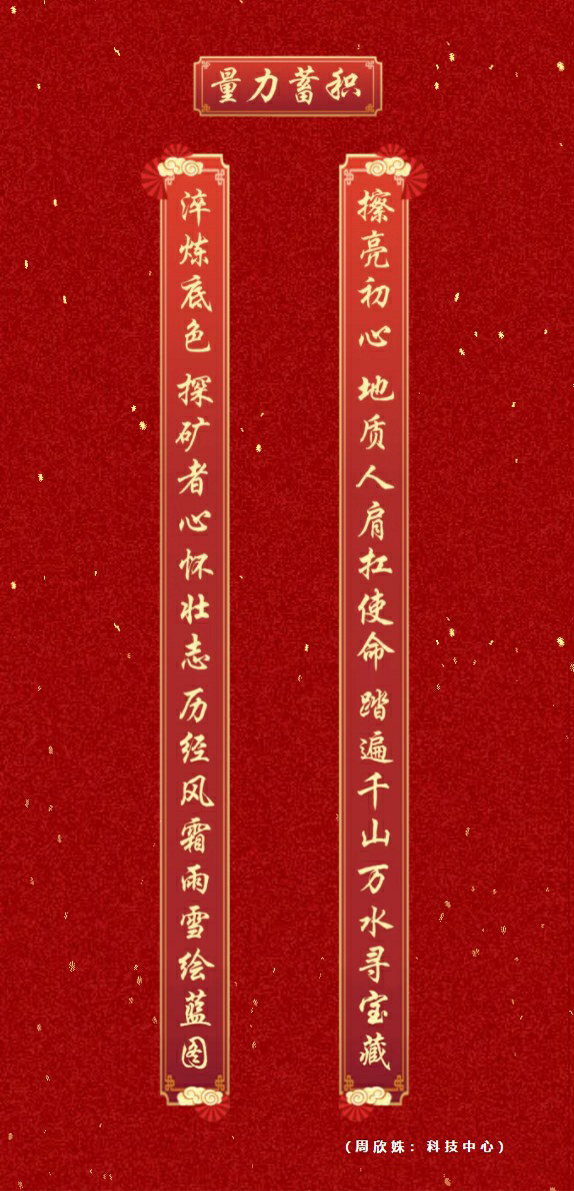 积蓄力量
擦亮初心 地质人肩扛使命 踏遍千山万水寻宝藏
淬炼底色 探矿者心怀壮志 历经风霜雨雪绘蓝图
(周欣姝：科技中心)